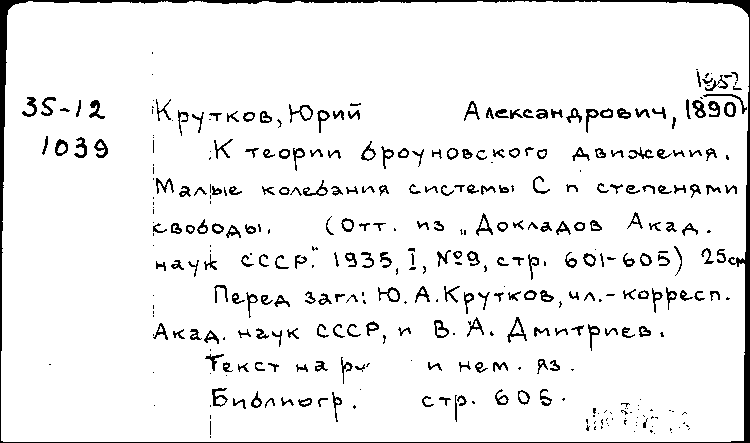 1952
35-12 Крутков, Юрий Александрович, 1890
1039 К теории броуновского движения.
Малые колебания системы С n степенями
свободы. (Отт. из „Докладов Акад.
наук СССР." 1935, I, №9, стр. 601-605) 25см
Перед загл: Ю.А.Крутков, чл.-корресп.
Акад. наук СССР, и В. А. Дмитриев.
Текст на ру и нем. яз.
Библиогр. стр. 605.